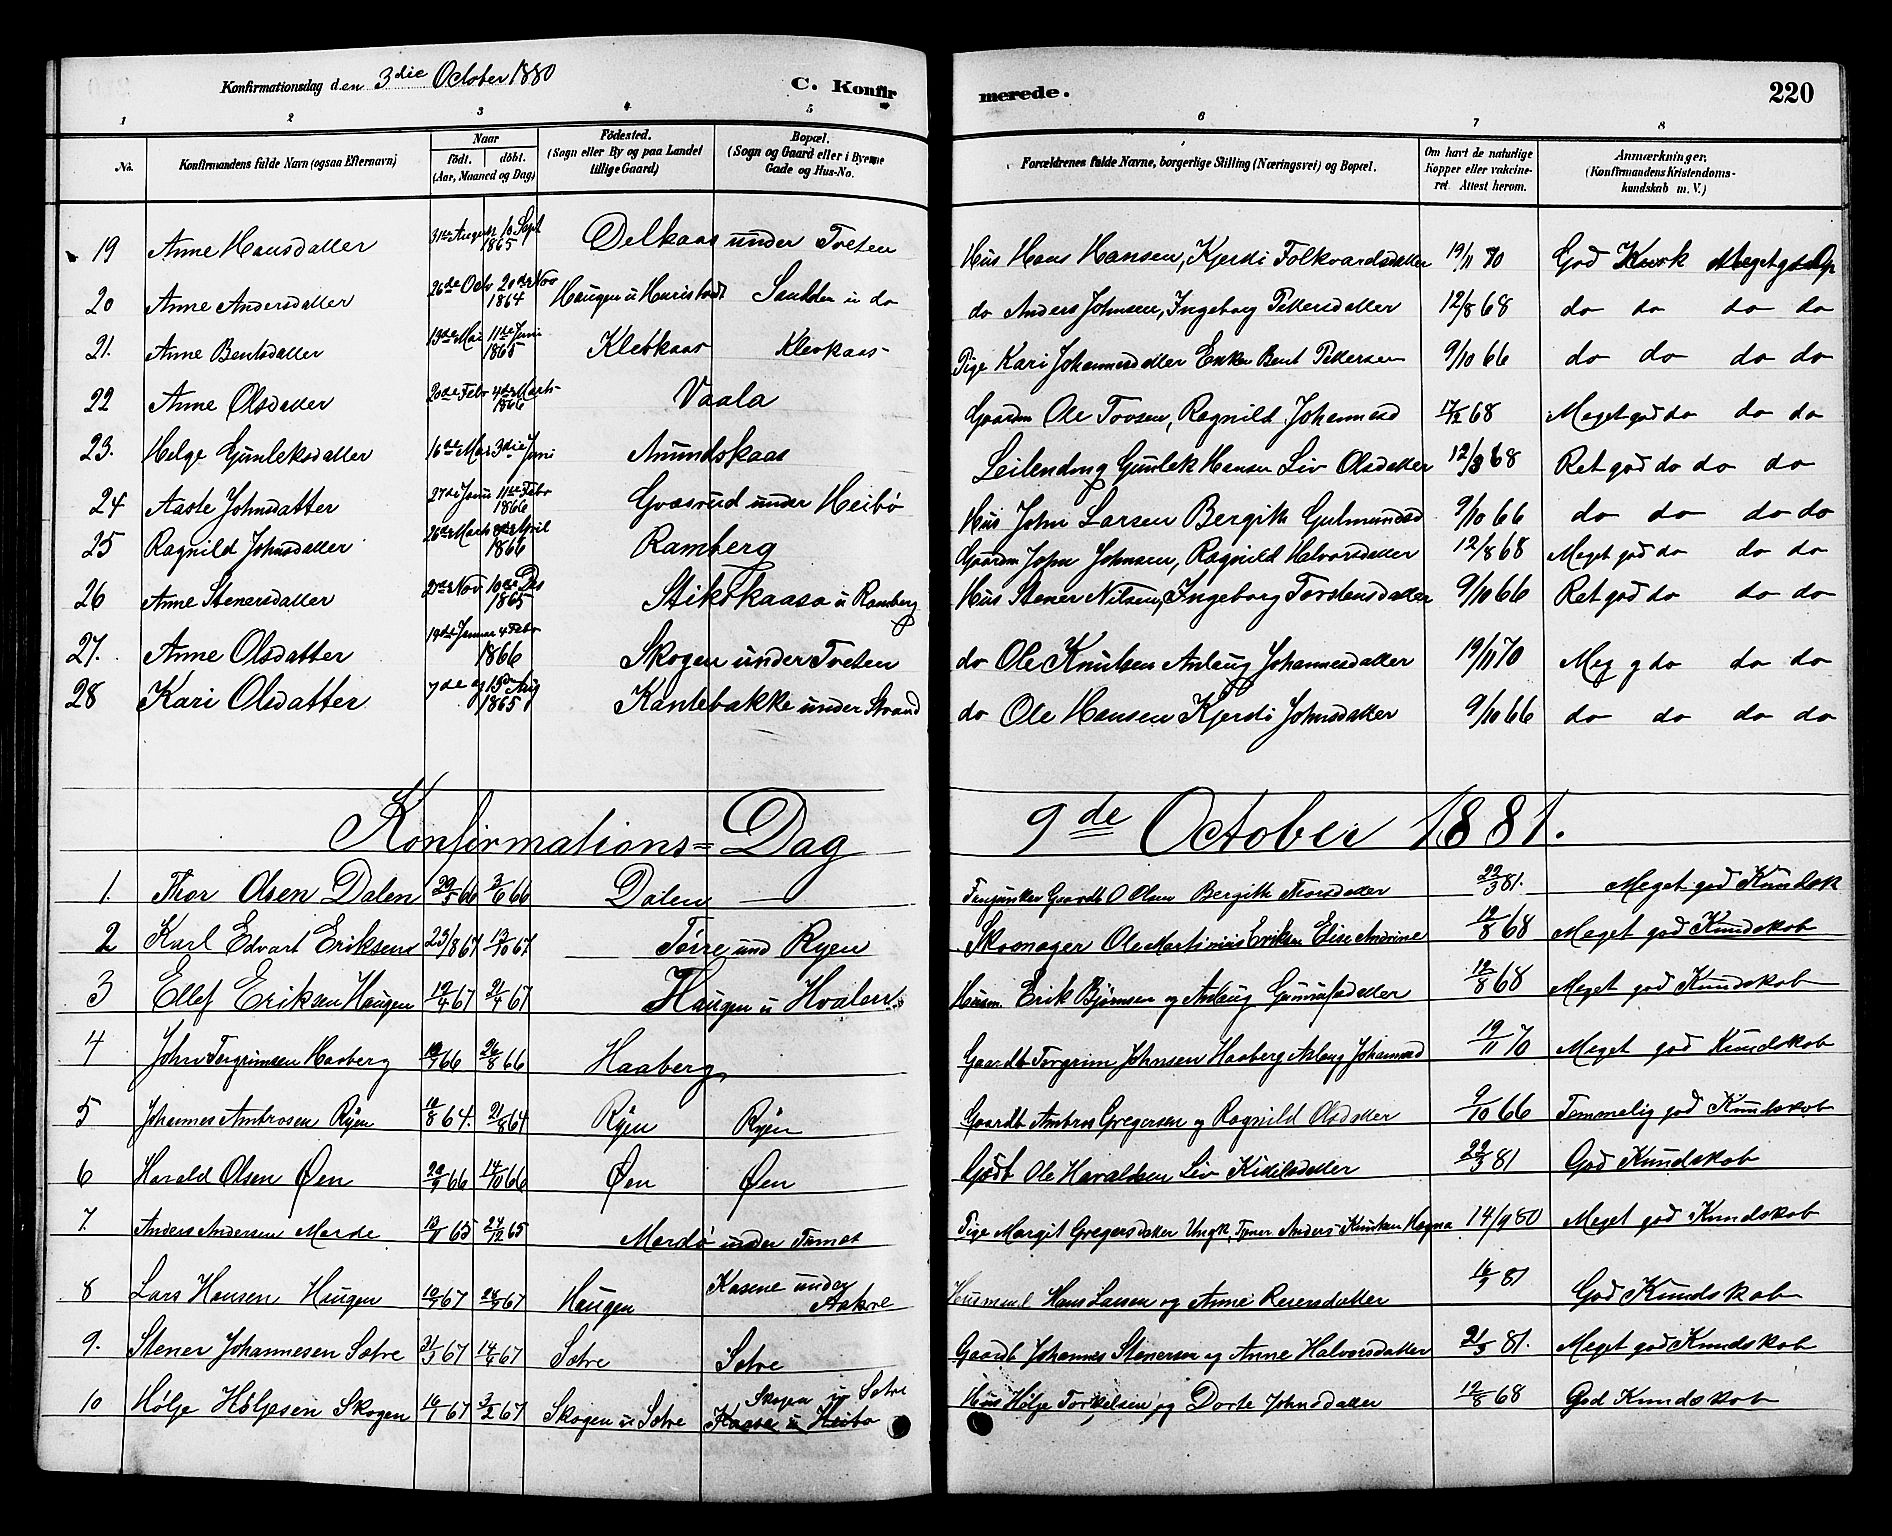 Konfirmationsdag den 3die October 1880 C. Konfirmerede. 220
1 2 3 4 5 6 7 8
No. Konfirmandens fulde Navn (ogsaa Efternavn) Naar födt. döbt. (Aar, Maaned og Dag) Födested. (Sogn eller By og paa Landet tillige Gaard) Bopæl. (Sogn og Gaard eller i Byerne Gade og Hus-No. Forældrenes fulde Navne, borgerlige Stilling (Næringsvei) og Bopæl. Om havt de naturlige Kopper eller vakcineret. Attest herom. Anmærkninger. (Konfirmandens Kristendomskundskab m. V.)
19 Anne Hansdatter 31te August 10 Sept 1865 Delkaas under Tveten Hus Hans Hansen, Kjersti Folkvardsdatter 19/11 70 God Kusk Meget god Op
20 Anne Andersdatter 26de Octv 20de Nov 1864 Haugen u Sandden u do do Anders Johnsen, Ingeborg Pettersdatter 12/8 68 do do do do
21. Anne Bentsdatter 13de Mai 11te Juni 1865 Klevkaas Klevkaas Pige Kari Johannesdatter Enkm Bent Pettersen 9/10 66 do do do do
22 Anne Olsdatter 20de Febr 4de Marts 1866 Vaala Gaardm Ole Tovsen, Ragnild Johannesd 68 Meget god do do do
23. Helge Gunleksdatter 16de Mai 3die Juni Amundskaas Leilending Gunlek Hansen Liv Olsdatter 12/8 68 Ret god do do do
24 Aaste Johnsdatter 27de Janu 11te Febr 1866 Gvasrud under Heibö Hus John Larsen Bergith Gulmundsd 9/10 66 do do do do
25 Ragnild Johnsdatter 26de Marts April 1866 Ramberg Gaardm John Johnsen, Ragnild Halvorsdatter 12/8 68 Meget god do do do
26 Anne Stenersdatter 27de Nov 10de Des 1865 Stikskaasa u Ramberg Hus Stener Nilsen, Ingeborg Torstensdatter 9/10 66 Ret god do do do
27. Anne Olsdatter 19de Januar 4 Febr 1866 Skogen under Tveten do Ole Knutsen Aslaug Johannesdatter 19/11 70 Meg g do do do
28 Kari Olsdatter 7de og 13de Aug 1865 Kantebakke under Strand do Ole Hansen Kjersti Johnsdatter 9/10 66 do do do do
Konfirmations=Dag 9de October 1881.
1. Thor Olsen Dalen 29/5 66 3/6 66 Dalen — Gaardb O Olsen Bergith Thorsdatter 22/3 81. Meget god Kundsk
2 Karl Edvart Eriksen 23/8 67 13/10 67 Tørre und Ryen Skomager Ole Martinius Eriksen Elise Andrine 12/8 68 Meget god Kundskob
3 Ellef Eriksen Haugen 12/4 67 21/4 67 Haugen u Hvalen Husm Erik Bjørnsen og Aslaug Gunnufsdatter 12/8 68 Meget god Kundskob
4 John Torgrimsen Haaberg 66 26/8 66 Haaberg Gaardb Torgrim Johnsen Haaberg Aslaug Johannesd 19/11 70 Meget god Kundskob
5 Johannes Ambrosen Ryen 10/8 64. 21/8 64 Ryen Ryen Gaardb Ambros Gregersen og Ragnild Olsdatter 9/10 66 Temmelig god Kundskob
6 Harald Olsen Øen 29/9 66 14/10 66 Øen Øen Gdb Ole Haraldsen Liv Kittilsdatter 22/3 81 God Kundskob
7. Anders Andersen Morde 65 24/12 65 Mordö under Tomot Pige Margit Gregersdatter Ungk, Tjener Anders Knutsen Hagna 14/9 80 Meget god Kundskob
8 Lars Hansen Haugen 67 67 Haugen Kasene under Askve Husmand Hans Larsen og Anne Reiersdatter 16/9 81 God Kundskob
9. Stener Johannesen Sotve 31/3 67 14/4 67 Sotve Sotve Gaardb Johannes Stenersen og Anne Halvorsdatter 21/3 81. Meget god Kundskob
10 Hølje Høljesen Skogen 16/1 67 3/2 67 Skogen u Sotve Skogen u Sotve Kaasa u Heibo Hus Hølje Torkelsen og Dorte Johnsdatter 12/8 68 God Kundskob